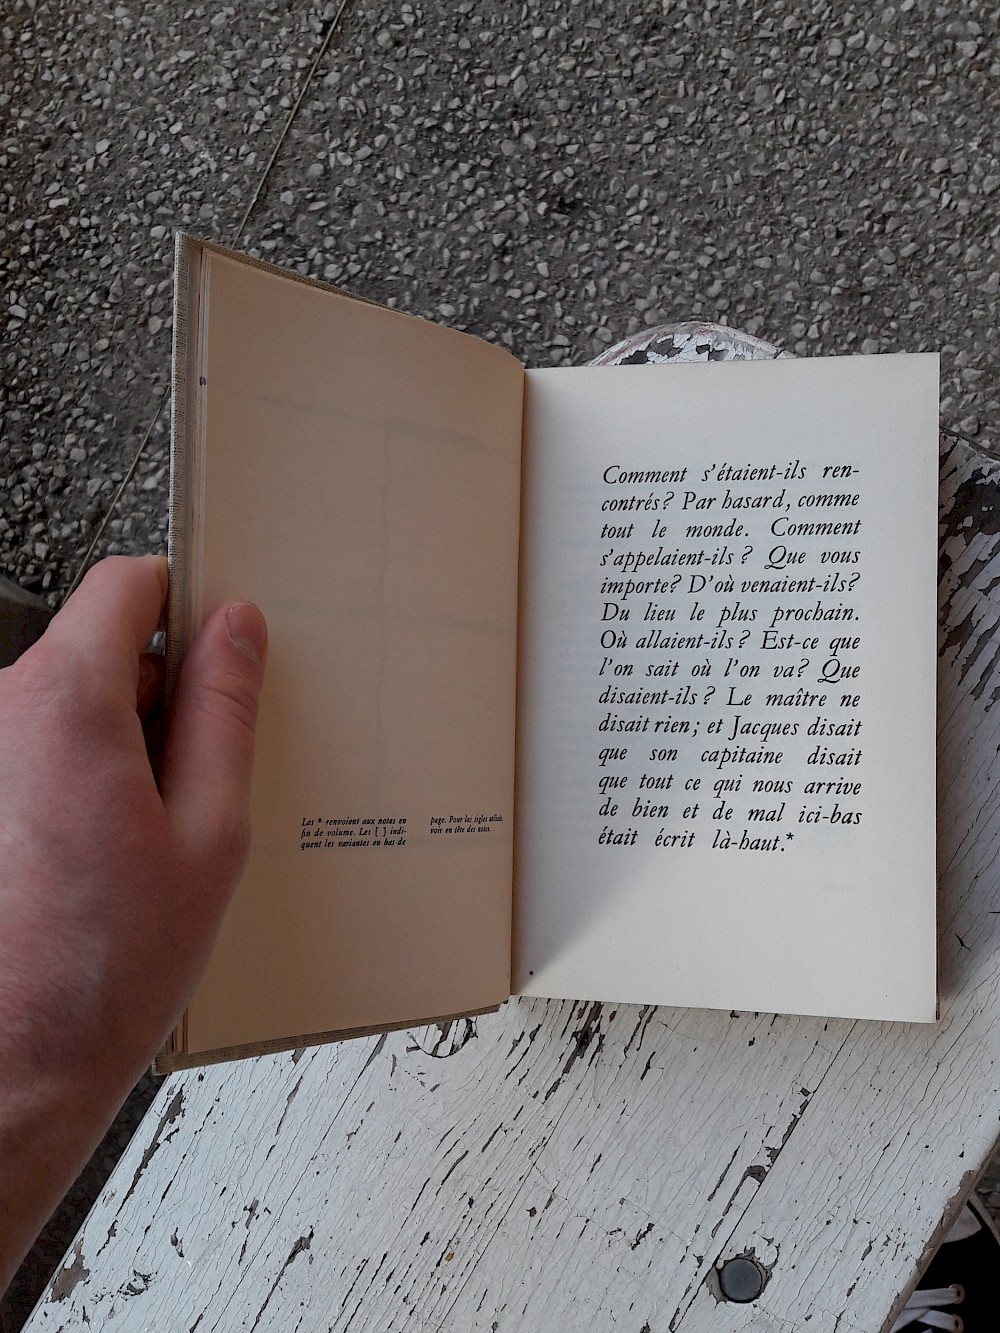 Les * renvoient aux notes en
fin de volume. Les [ ] indi-
quent les variantes en bas de
page. Pour les sigles utilisés,
voir en tête des notes.
Comment s'étaient-ils ren-
contrés? Par hasard, comme
tout le monde. Comment
s'appelaient-ils? Que vous
importe? D'où venaient-ils?
Du lieu le plus prochain.
Où allaient-ils? Est-ce que
l'on sait où l'on va? Que
disaient-ils? Le maître ne
disait rien; et Jacques disait
que son capitaine disait
que tout ce qui nous arrive
de bien et de mal ici-bas
était écrit là-haut.*